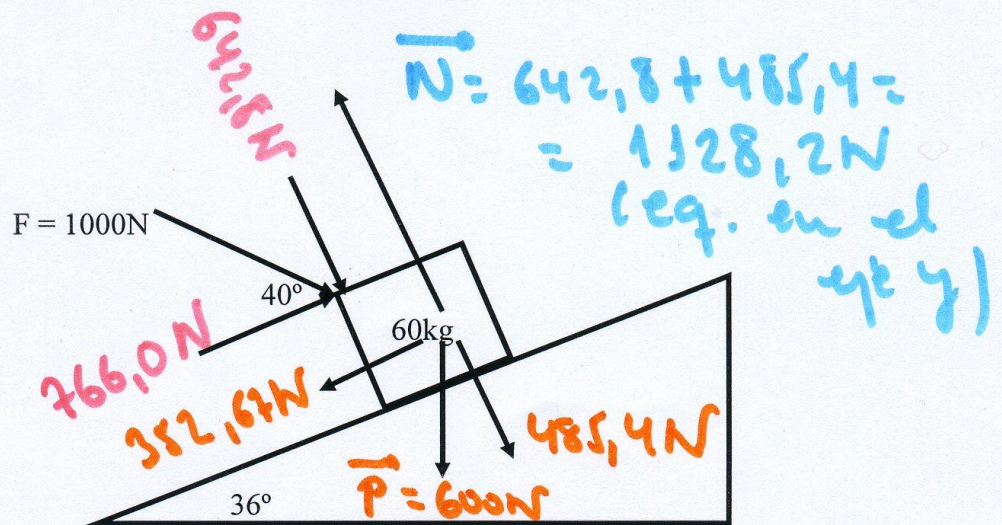 642,8N
N= 642,8+485,4=
= 1128,2N
(eq. en el
eje y)
F = 1000N
40º
60kg
766,0N
352,67N
485,4N
36º
P = 600N